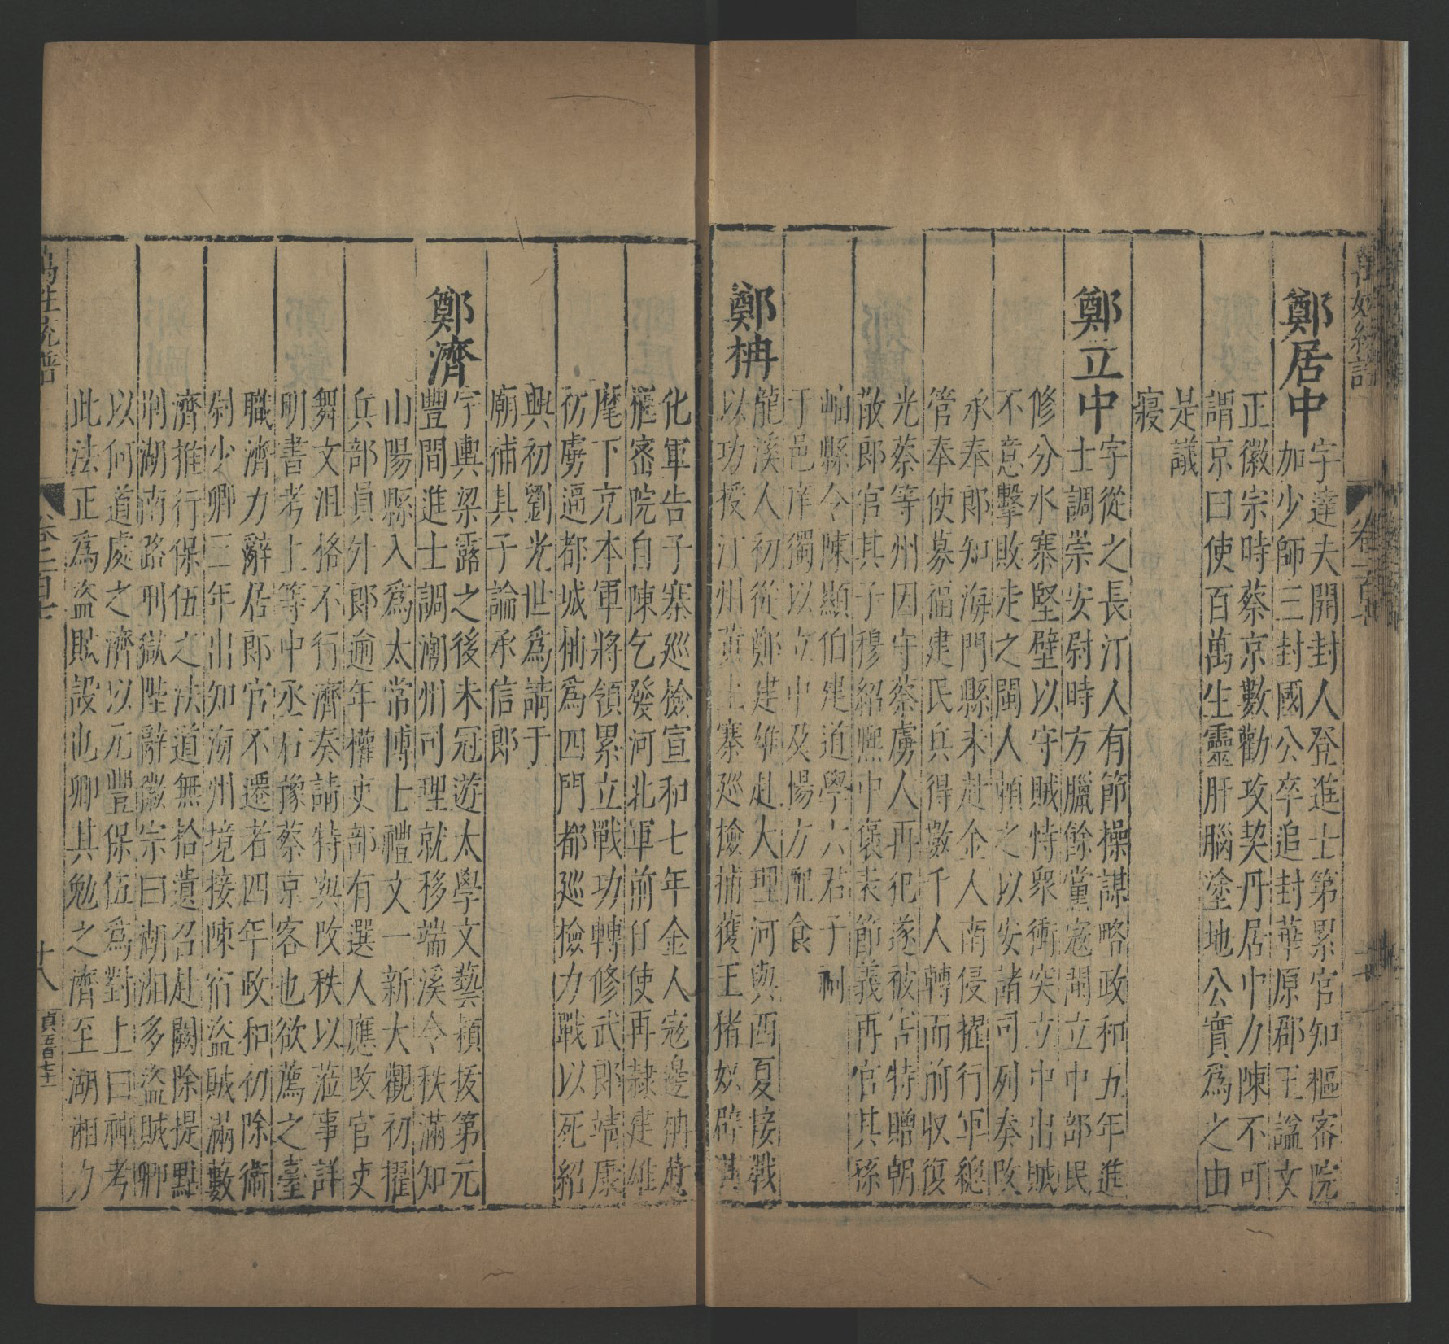 鄭居中
字達夫開封人登進士第累官知樞密院
加少師三封國公卒追封華原郡王諡文
正徽宗時蔡京數勸攻契丹居中力陳不可
謂京曰使百萬生靈肝腦塗地公實為之由
是議
寢
鄭立中
字從之長汀人有節操謀略政和五年進
士調崇安尉時方臘餘黨寇閩立中部民
修分水寨堅壁以守賊恃衆衝突立中出賊
不意擊敗走之閩人賴之以安諸司列奏改
承奉郎知海門縣未赴金人南侵擢行軍總
管奉使募福建民兵得數千人轉而前収復
光蔡等州因守蔡虜人再犯遂被害特贈朝
散郎官其子穆紹興中褒表節義再官其孫
縣令陳顯伯建道學六君子祠
于邑庠獨以立中及楊方配食
鄭柟
龍溪人初從鄭建雄赴大理河與西夏接戰
以功授江州黃土寨巡檢捕獲王猪奴辟
化軍告子寨巡檢宣和七年金人寇邊柟赴
樞密院自陳乞發河北軍前任使再隷建雄
麾下充本軍將領累立戰功轉修武郎靖康
初虜逼都城柟為四門都巡檢力戰以死紹
興初劉光世為請于
廟補其子論承信郎
鄭濟
字輿梁露之後未冠遊太學文藝穎拔第元
豐間進士調潮州司理就移端溪令秩滿知
山陽縣入為太常博士禮文一新大觀初擢
兵部員外郎逾年權吏部有選人應改官吏
舞文沮格不行濟奏請特與改秩以蒞事詳
明書考上等中丞石豫蔡京客也欲薦之臺
職濟力辭居郎官不遷者四年政和初除衛
尉少卿三年出知海州境接陳宿盗賊滿數
濟推行保伍之法道無拾遺召赴闕除提點
荆湖南路刑獄陛辭徽宗曰湖湘多盗賊卿
以何道處之濟以元豐保伍為對上曰神考
此法正為盗賊設也卿其勉之濟至湖湘力
萬姓統譜
卷一百七
十八